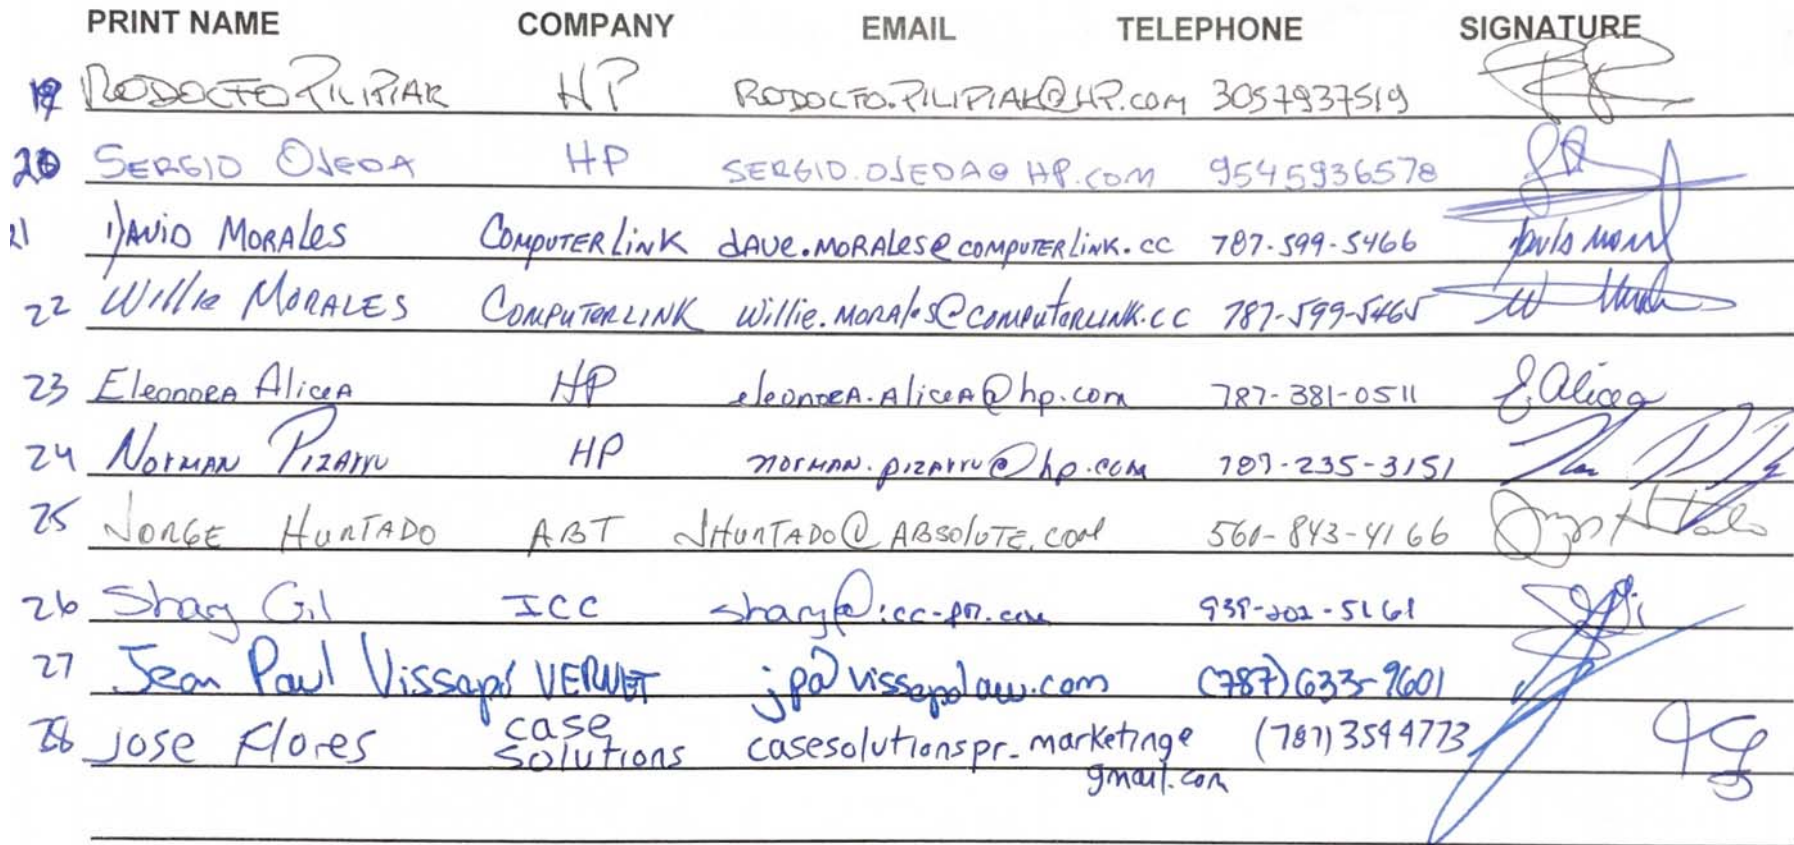 PRINT NAME COMPANY EMAIL TELEPHONE SIGNATURE
19 RODOLFO PILIPIAK HP RODOLFO.PILIPIAK@HP.COM 3057937519
20 SERGIO OJEDA HP SERGIO.OJEDA@HP.COM 9545936578
21 DAVID MORALES COMPUTERLINK dAVE.MORALES@COMPUTERLINK.CC 787-599-5466
22 Willie MORALES COMPUTERLINK Willie.MORALES@COMPUTERLINK.CC 787-599-5465
23 Eleonora Alicea HP eleonora.Alicea@hp.com 787-381-0511 E. Alicea
24 Norman Pizarro HP norman.pizarro@hp.com 787-235-3151
25 JORGE HURTADO ABT JHURTADO@ABSOLUTE.COM 561-843-4166
26 Shary Gil ICC shary@icc-pr.com 939-202-5161
27 Jean Paul Vissepó VERNET jp@vissepolaw.com (787)633-9601
28 Jose Flores case solutions casesolutionspr.marketing@ (787)3544773
gmail.com